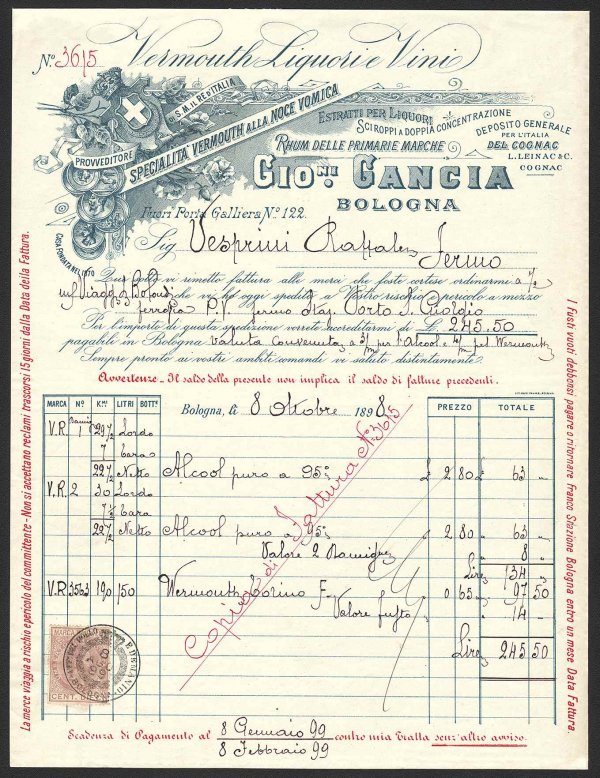 Nº 3615
Vermouth Liquori e Vini
PROVVEDITORE DI S.M. IL RE D'ITALIA
SPECIALITÀ VERMOUTH ALLA NOCE VOMICA
ESTRATTI PER LIQUORI
SCIROPPI A DOPPIA CONCENTRAZIONE
RHUM DELLE PRIMARIE MARCHE
DEPOSITO GENERALE
PER L'ITALIA
DEL COGNAC
L. LEINA & C.
COGNAC
GIO.NI GANCIA
BOLOGNA
Fuori Porta Galliera Nº 122.
CASA FONDATA NEL 1870
Sig. Vesprini Raffaele
Fermo
Qui sotto vi rimetto fattura alle merci che foste cortese ordinarmi a 1/2
che vi ho oggi spedito a Vostro rischio e pericolo a mezzo
ferrovia P.V. fermo Staz. Porto S. Giorgio
Per l'importo di questa spedizione vorrete accreditarmi di L. 245.50
pagabile in Bologna valuta convenuta a 3/m per l'Alcool e 4/m pel Wermouth
Sempre pronto ai vostri ambiti comandi vi saluto distintamente.
Avvertenze - Il saldo della presente non implica il saldo di fatture precedenti.
MARCA Nº K.mi LITRI BOTT.e Bologna, li 8 Ottobre 1898 PREZZO TOTALE
V.R. 1 29 1/2 Lordo
7 Tara
22 1/2 Netto Alcool puro a 95º £ 2 80 £ 63 "
V.R. 2 30 Lordo
7 1/2 Tara
22 1/2 Netto Alcool puro a 95º 2 80 63 "
Valore 2 Damigne 8 "
Lire 134 "
V.R. 3563 190 150 Wermouth Torino F. 0 65 97 50
Valore fusto 14 "
Lire 245 50
Copia di Fattura Nº 3615
MARCA
CENT.
Scadenza di Pagamento al 8 Gennaio 99 contro mia Tratta senz'altro avviso.
8 Febbraio 99
La merce viaggia a rischio e pericolo del committente - Non si accettano reclami trascorsi 15 giorni dalla Data della Fattura.
I Fusti vuoti debbonsi pagare o ritornare franco Stazione Bologna entro un mese Data Fattura.